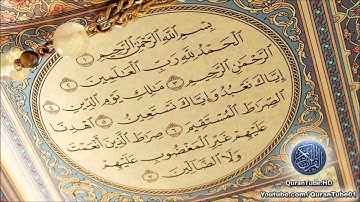 بِسْمِ اللَّهِ الرَّحْمَٰنِ الرَّحِيمِ ١
الْحَمْدُ لِلَّهِ رَبِّ الْعَٰلَمِينَ ٢
الرَّحْمَٰنِ الرَّحِيمِ ٣ مَٰلِكِ يَوْمِ الدِّينِ ٤
إِيَّاكَ نَعْبُدُ وَإِيَّاكَ نَسْتَعِينُ ٥ اهْدِنَا
الصِّرَاطَ الْمُسْتَقِيمَ ٦ صِرَاطَ الَّذِينَ أَنْعَمْتَ
عَلَيْهِمْ غَيْرِ الْمَغْضُوبِ عَلَيْهِمْ
وَلَا الضَّالِّينَ ٧
QuranTube.HD
Youtube.com/QuranTube01